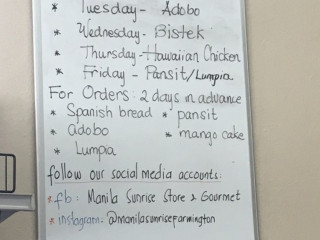 * Tuesday - Adobo
* Wednesday - Bistek
* Thursday - Hawaiian Chicken
* Friday - Pansit/Lumpia
For Orders: 2 days in advance
* Spanish bread * pansit
* adobo * mango cake
* Lumpia
follow our social media accounts:
* fb: Manila Sunrise Store & Gourmet
* instagram: @manilasunrisefarmington